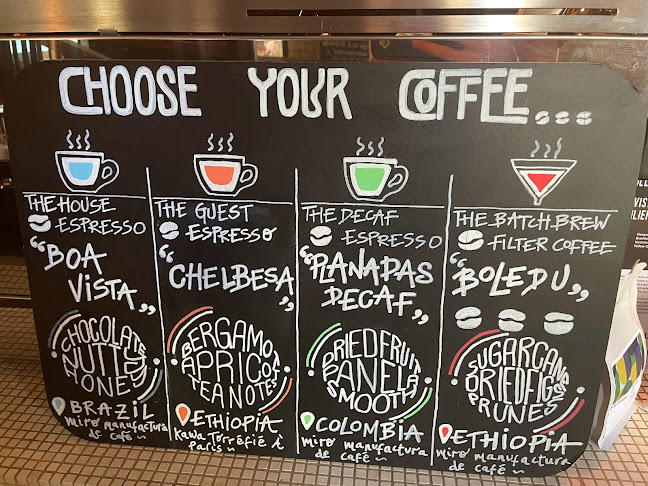 CHOOSE YOUR COFFEE...
THE HOUSE
ESPRESSO
"BOA
VISTA"
CHOCOLATE
NUTTY
HONEY
BRAZIL
miró manufactura
de café
THE GUEST
ESPRESSO
"CHELBESA"
BERGAMOT
APRICOT
TEA NOTES
ETHIOPIA
Kawa Torréfié à
Paris
THE DECAF
ESPRESSO
"PLANADAS
DECAF"
DRIED FRUIT
PANELA
SMOOTH
COLOMBIA
miró manufactura
de café
THE BATCH BREW
FILTER COFFEE
"BOLEDU"
SUGARCANE
DRIED FIGS
PRUNES
ETHIOPIA
miró manufactura
de café